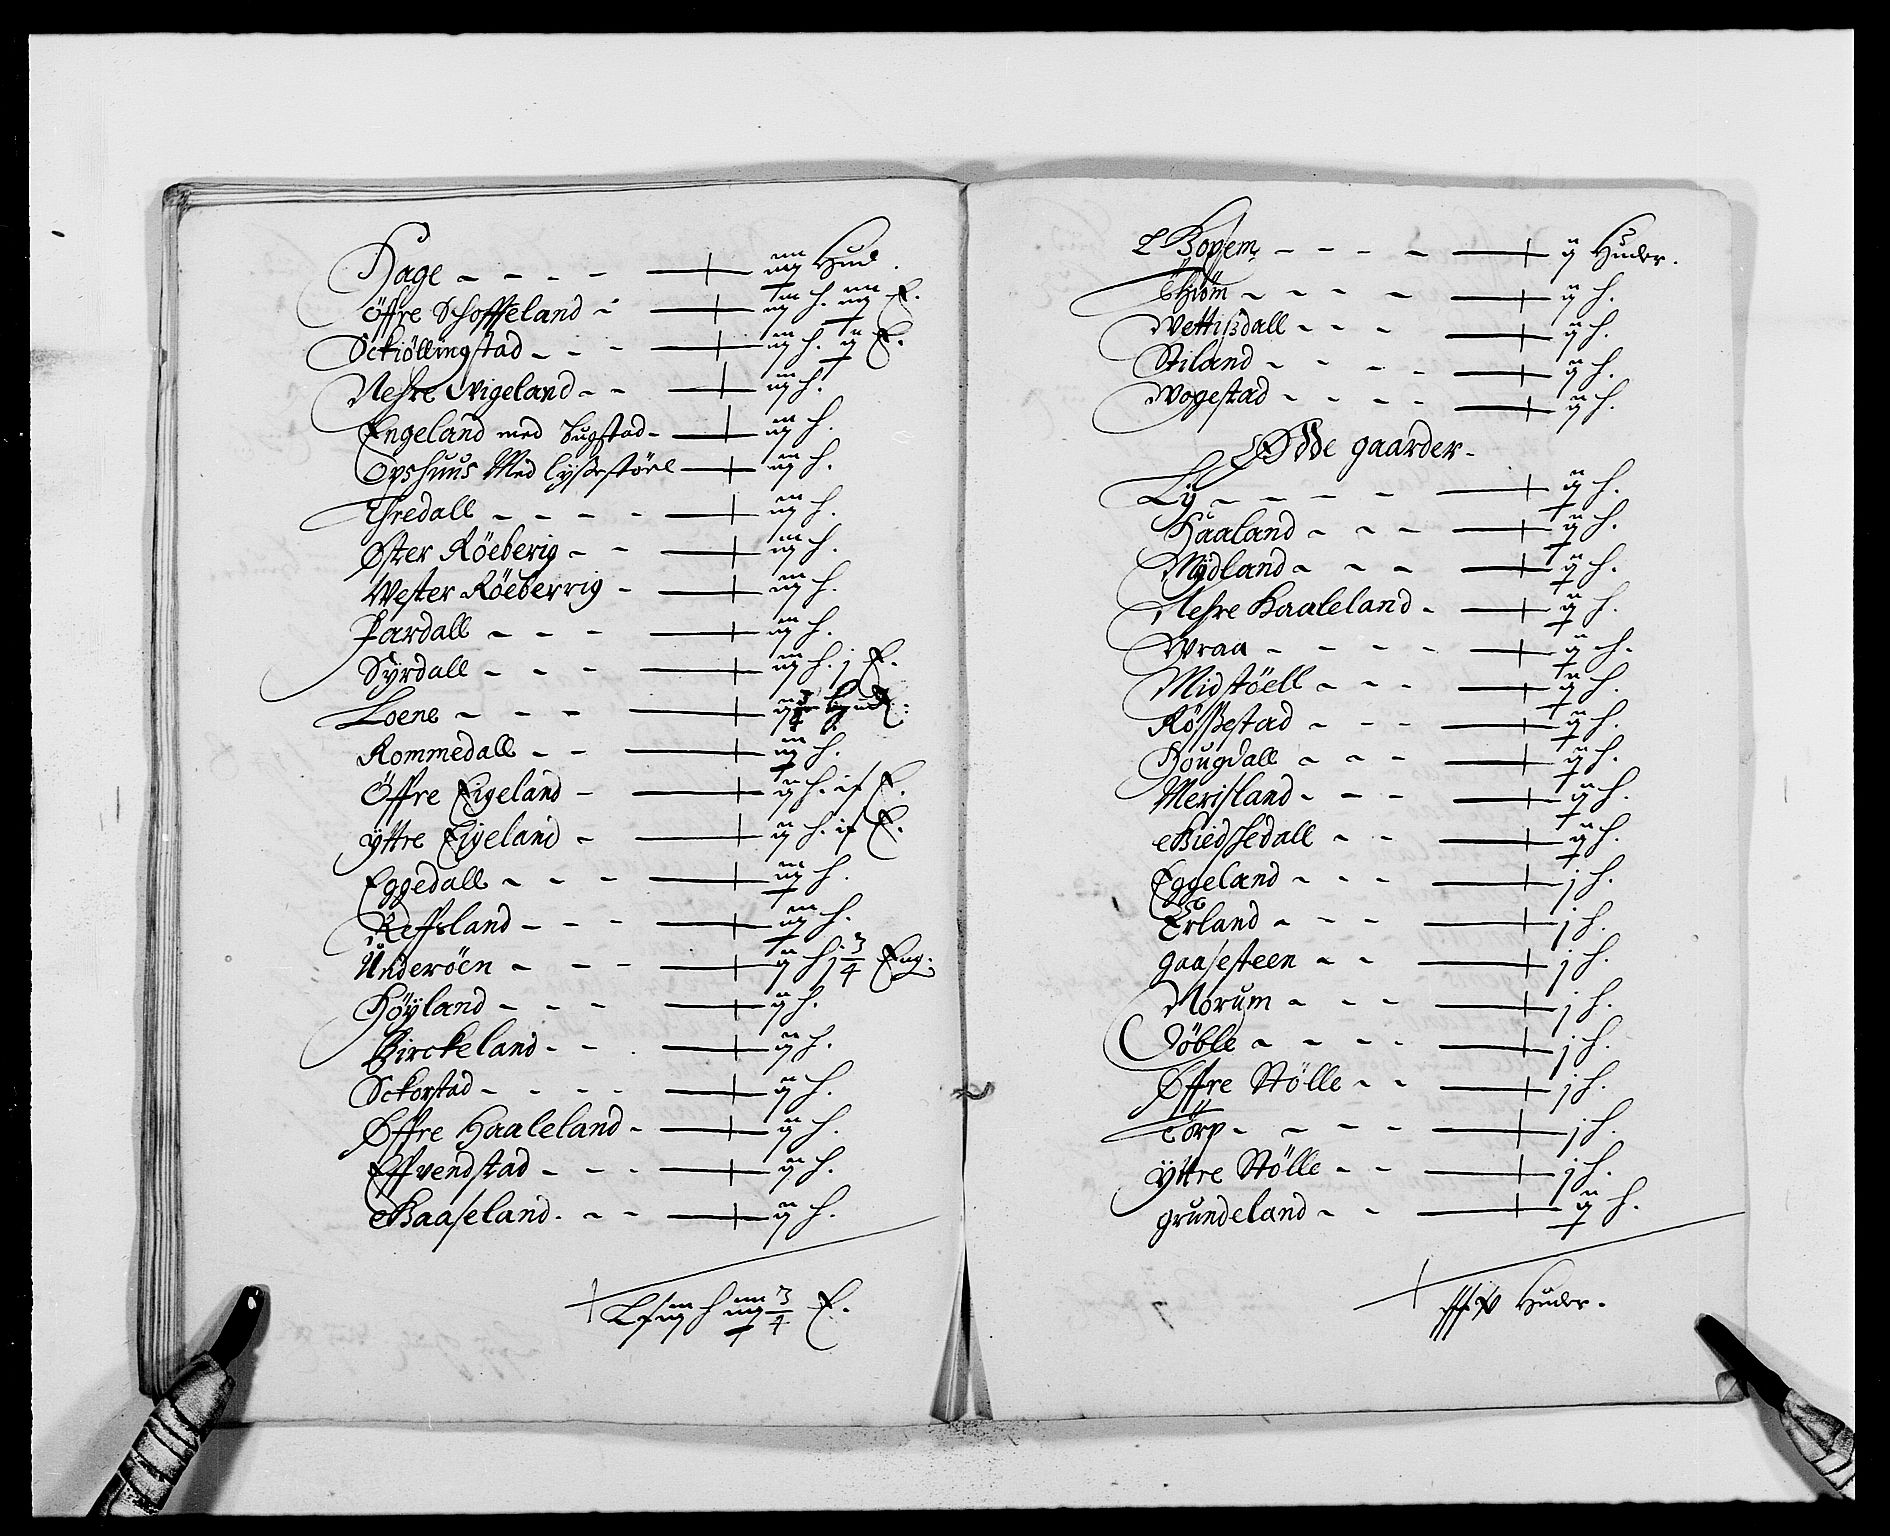 Hage - - - - iiij Hud.
Öffre Schoffeland - iij h. iiij E.
Sckiöllingstad - - - iij h. ij E.
Nehre Vigeland - - iij h.
Engeland med bugstad - iij h.
Opshuus Med lyssestöel iij h.
Thredall - - - - iij h.
Øster Röeberig - - iij h.
Wester Röeberrig - iij h.
Jardall - - - iij h.
Syrdall - - - iij h. j E.
Loene - - -
Rommedall - - iij h.
Öffre Eigeland - ij h. if E.
Yttre Eigeland - ij h. if E.
Eggedall - - - - iij h.
Reffsland - - - iij h.
Underöen - - - ij h j 3/4 Eng.
Höyland - - - ij h.
Birckeland - - - ij h.
Sckorstad - - - - ij h.
Øffre Haaleland - ij h.
Effvendstad - - - ij h.
Baaseland - - - ij h.
h 3/4 E.
Bopem - - - - ij Huder.
Thiöm - - - - ij h.
Wettissdall - - - ij h.
Stiland - - - - ij h.
Wogestad - - - - ij h.
Ødde gaarder -
Ly - - - - ij h.
Haaland - - - ij h.
Mydland - - - ij h.
Nehre Haaleland - ij h.
Wraa - - - - ij h.
Midstöell - - - ij h.
Rössestad - - - ij h.
Hougdall - - - ij h.
Merisland - - - ij h.
Biedssedall - - ij h.
Eggeland - - - j h.
Erland - - - j h.
gaasesteen - - j h.
Morum - - - j h.
Döble - - - - j h.
Øffre Stölle - - j h.
Törp - - - - j h.
Yttre Stölle - - j h.
grundeland - - ij h.
Huder.